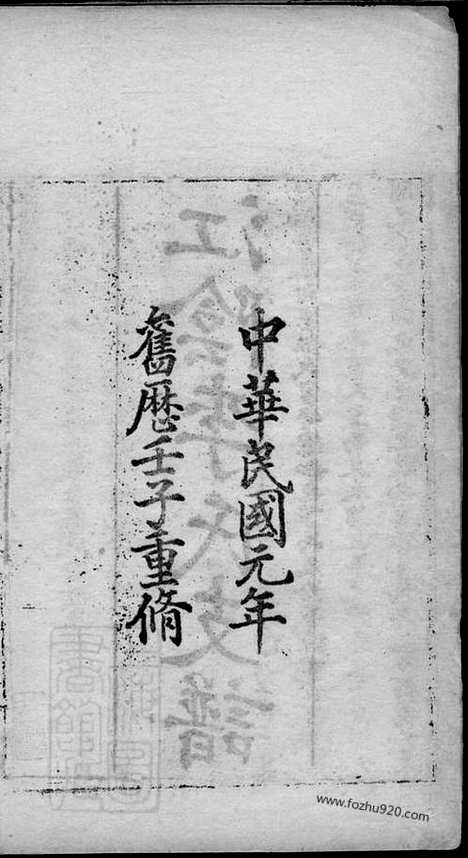 中華民國元年
舊歴壬子重脩
www.fozhu920.com